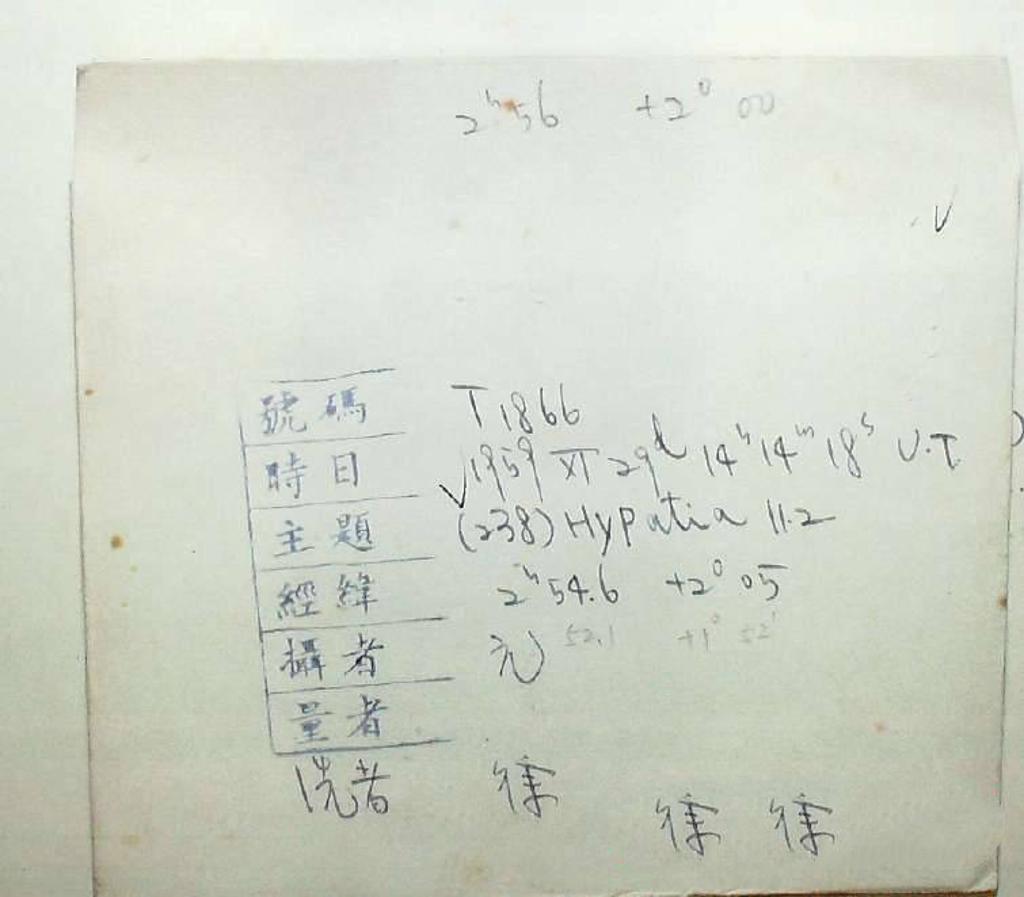 2ʰ 56 +2° 00
號碼 T 1866
時日 √1959 XI 29ᵈ 14ʰ 14ᵐ 18ˢ U.T
主題 (238) Hypatia 11.2
經緯 2ʰ 54.6 +2° 05
52.1 +1° 52'
攝者 元
量者
洗者 徐
徐 徐